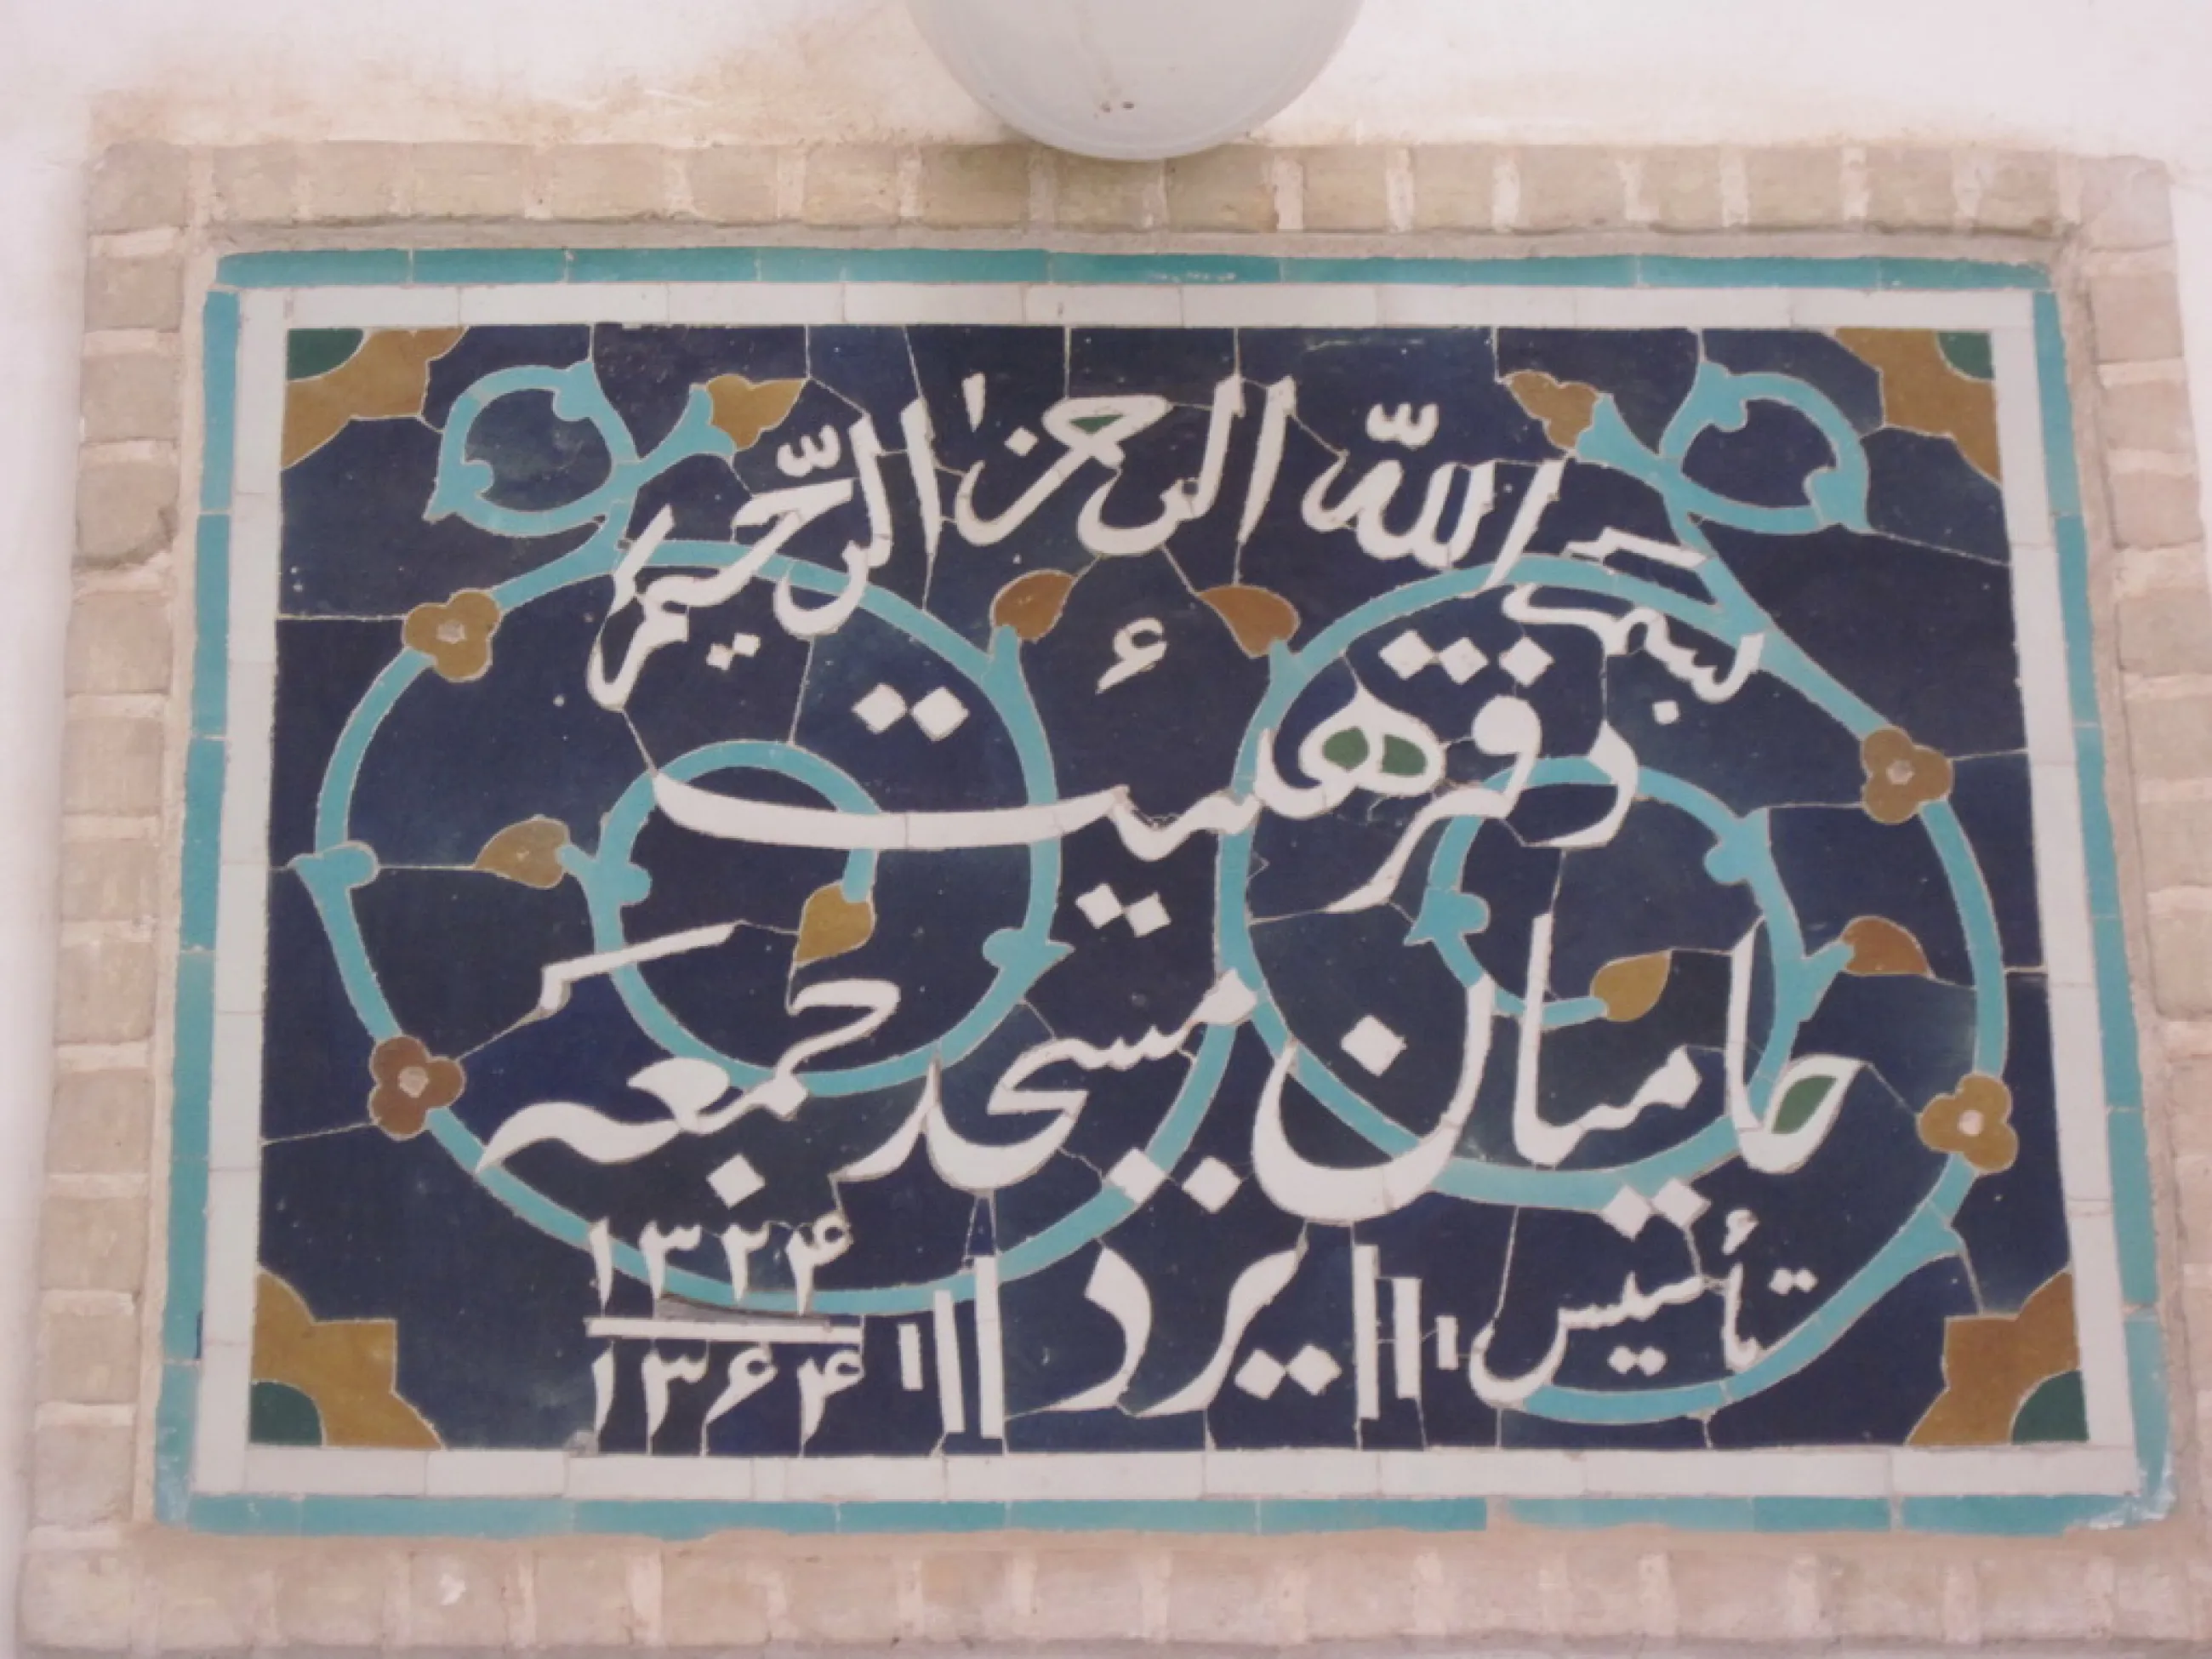 بسم الله الرحمن الرحیم
دفتر هیئت
حامیان مسجد جمعه
تأسیس یزد ۱۳۲۴
۱۳۶۴